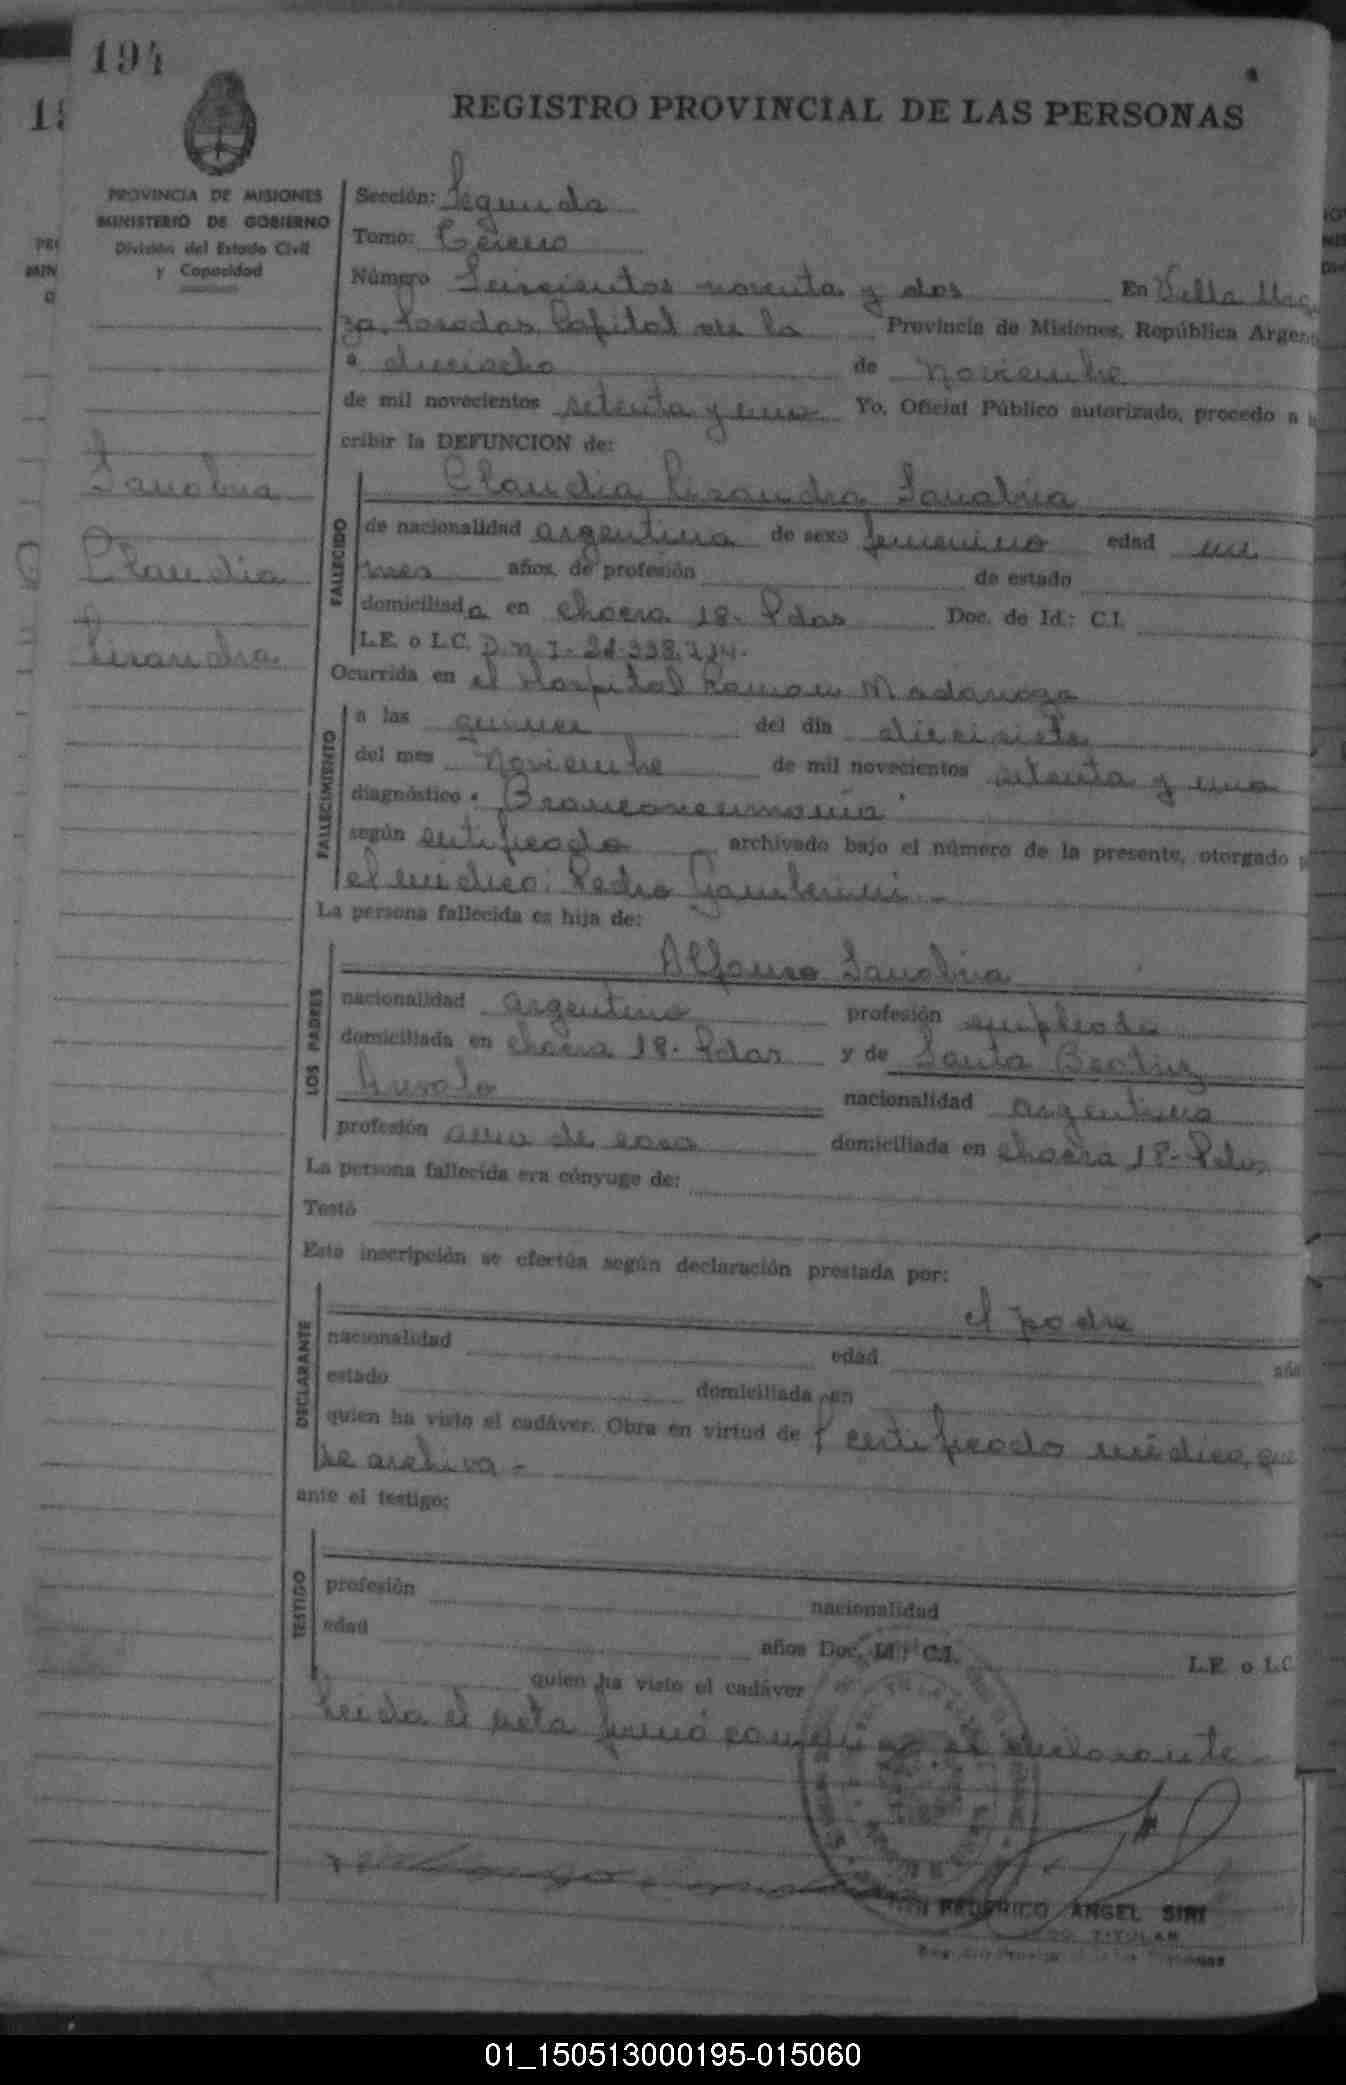 194
REGISTRO PROVINCIAL DE LAS PERSONAS
PROVINCIA DE MISIONES
MINISTERIO DE GOBIERNO
División del Estado Civil
y Capacidad
Sección: Segunda
Tomo: Tercero
Número Seiscientos noventa y dos En Villa Urqui
za, Posadas, Capital de la Provincia de Misiones, República Argen
a dieciocho de noviembre
de mil novecientos setenta y uno Yo, Oficial Público autorizado, procedo a
cribir la DEFUNCION de:
Sanabria
Claudia
Lisandra
Claudia Lisandra Sanabria
FALLECIDO
de nacionalidad argentina de sexo femenino edad un
mes años, de profesión de estado
domiciliada en chacra 18- Pdas Doc. de Id.: C.I.
L.E. o L.C. D.N.I-
Ocurrida en el Hospital Ramon Madariaga
FALLECIMIENTO
a las quince del día diecisiete
del mes Noviembre de mil novecientos setenta y uno
diagnóstico: Bronconeumonía
según certificado archivado bajo el número de la presente, otorgado p
el médico: Pedro
La persona fallecida es hija de:
LOS PADRES
Alfonso Sanabria
nacionalidad argentino profesión empleado
domiciliada en chacra 18- Pdas y de Santa Beatriz
nacionalidad argentina
profesión ama de casa domiciliada en chacra 18- Pdas
La persona fallecida era cónyuge de:
Testó
Esta inscripción se efectúa según declaración prestada por:
DECLARANTE
el padre
nacionalidad edad año
estado domiciliada en
quien ha visto el cadáver. Obra en virtud de certificado médico, que
se archiva -
ante el testigo:
TESTIGO
profesión nacionalidad
edad años Doc. Id.: C.I. L.E. o L.C.
quien ha visto el cadáver
Leida el acta firmó conmigo el declarante-
FEDERICO ANGEL SIRI
TITULAR
01_150513000195-015060